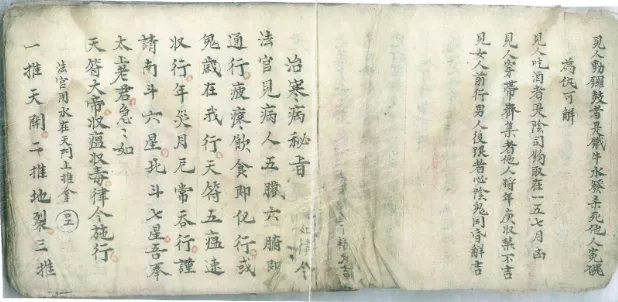 見人動鑼鼓者是鐵牛水裂未死他人兔魂
為仇可解
見人吃酒者是陰司鈎取在一五七月凶
見人穿帶齊集者他人將年庚收禁不吉
見女人前行男人後跟者必陰鬼同音解吉
治寒病秘旨
法官見病人五臟六腑即
通行疲瘝飲食即化行或
鬼歲在我行天符五瘟速
収行年災月厄常吞行謹
請南斗六星北斗七星吾奉
太上老君急々如
天符大帝収瘟収毒律令施行
法官用水在天門上推拿
一推天開二推地裂三推